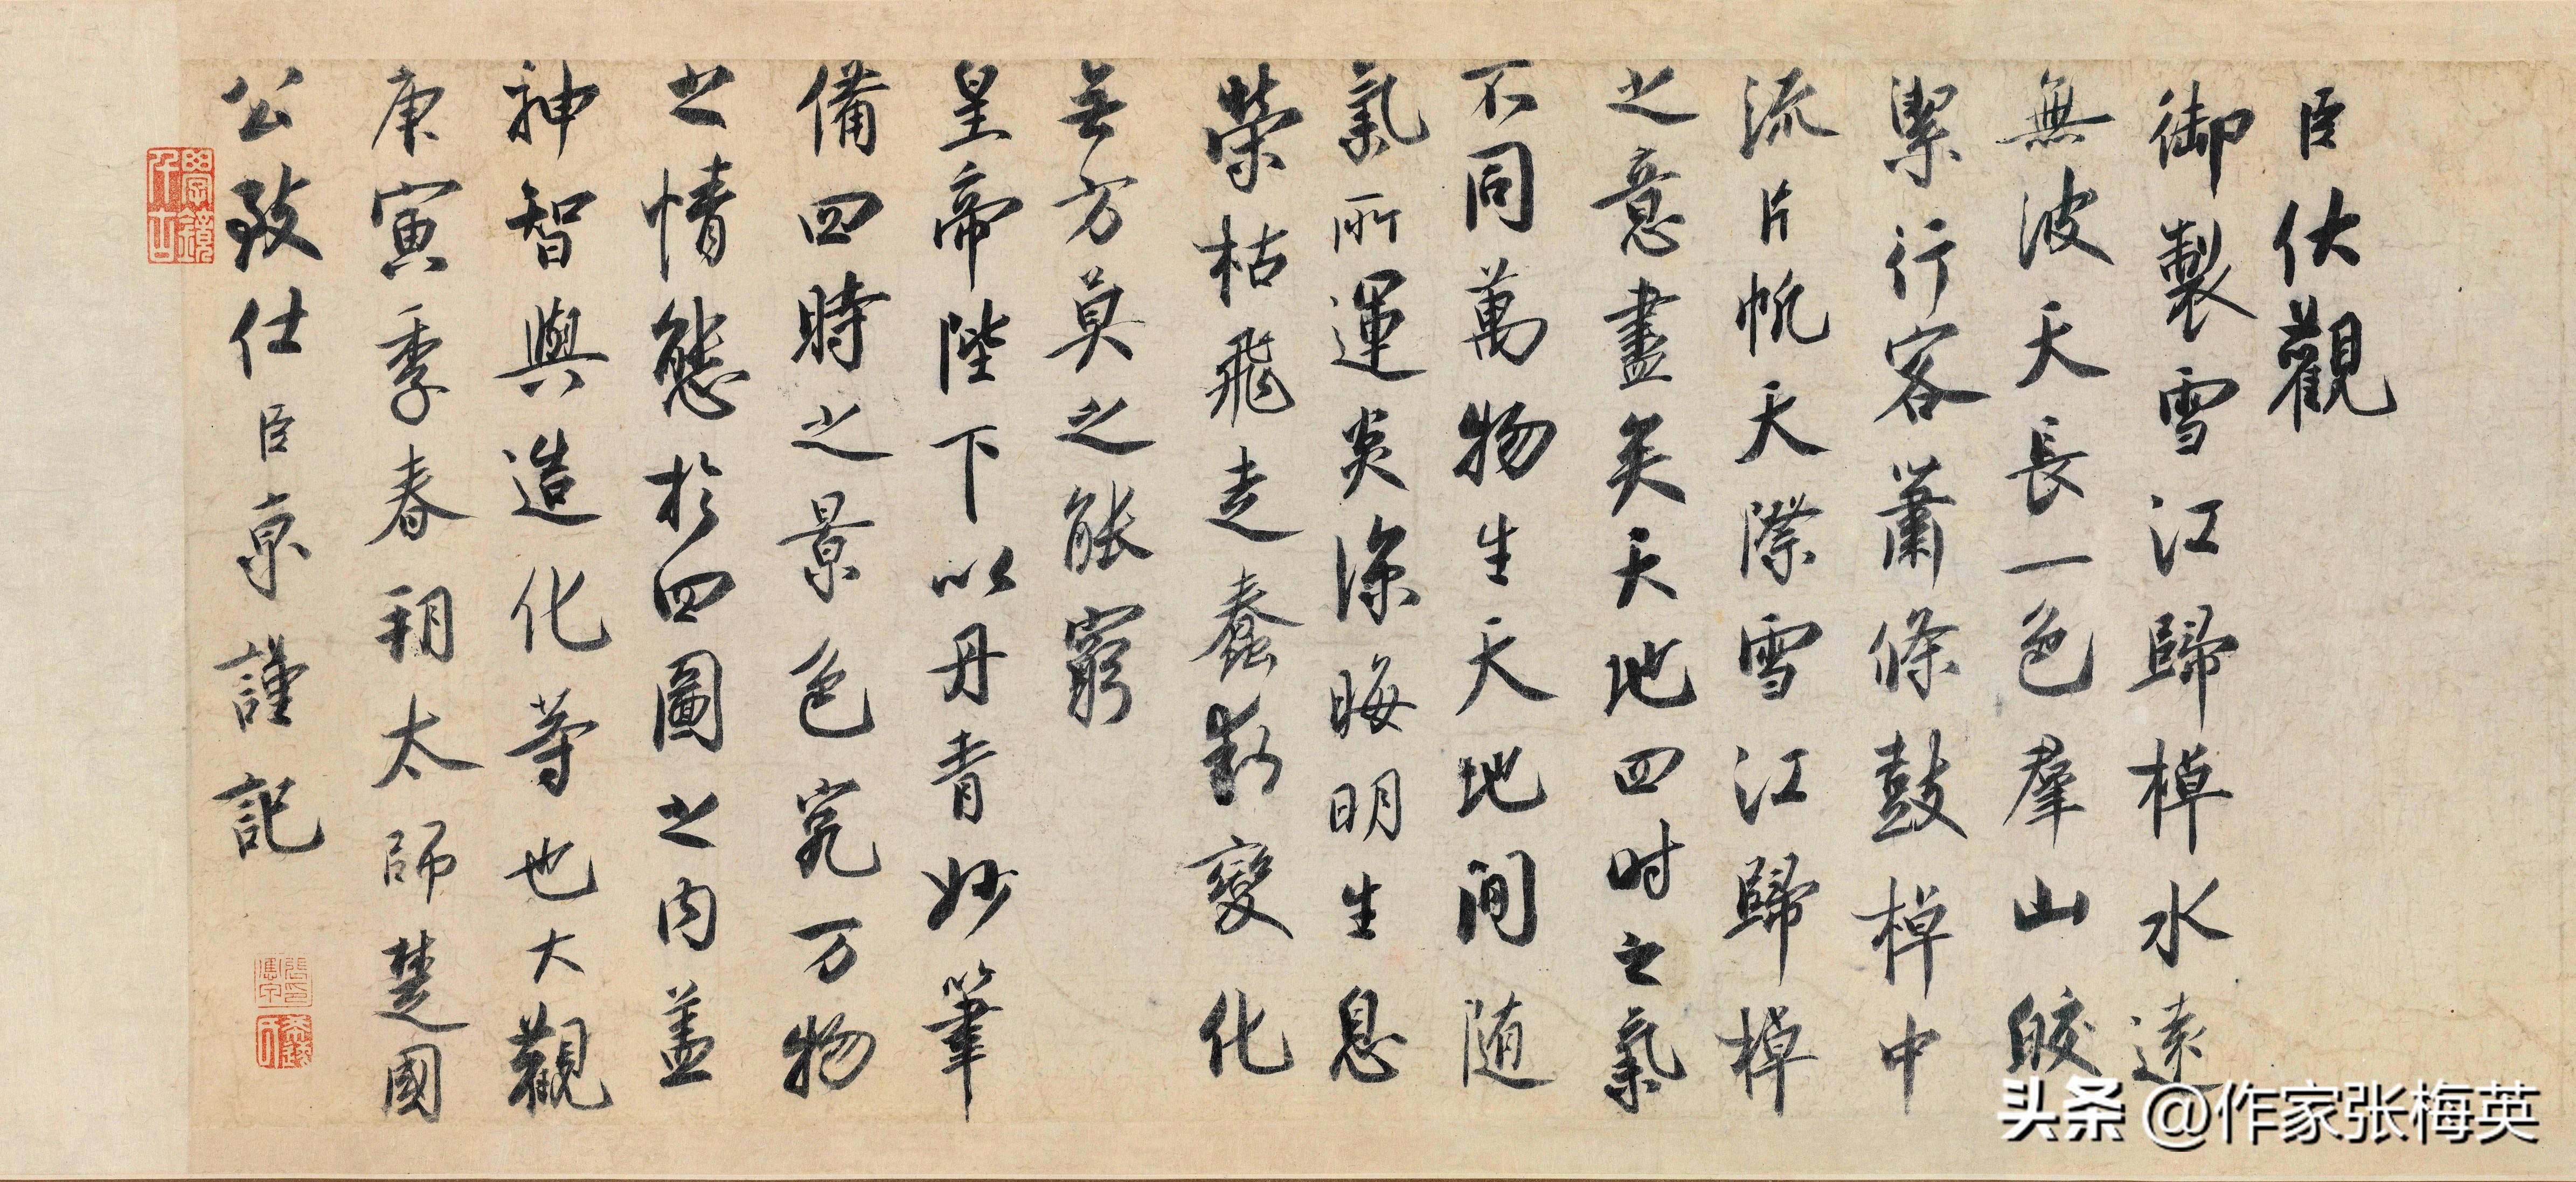 臣伏觀
御製雪江歸棹水遠
無波天長一色羣山皎
潔行客蕭條鼓棹中
流片帆天際雪江歸棹
之意盡矣天地四时之氣
不同萬物生天地间随
氣所運炎涼晦明生息
榮枯飛走蠢動變化
無方莫之能窮
皇帝陛下以丹青妙筆
備四時之景色究万物
之情態於四圖之内蓋
神智與造化等也大觀
庚寅季春朔太師楚國
公致仕臣京謹記
头条 @作家张梅英